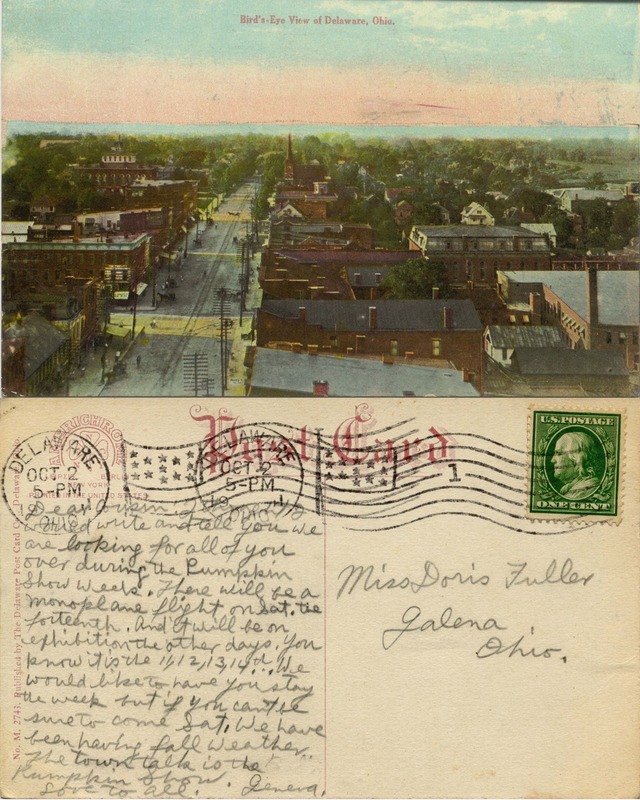 Bird's-Eye View of Delaware, Ohio.
Post Card
AMERICHROME
DELAWARE
OCT 2
5-PM
OHIO
DELAWARE
OCT 2
5-PM
19 1
OHIO
1
U.S. POSTAGE
ONE CENT
No. M. 2743. Published by The Delaware Post Card Co., Delaware
Dear Cousin
would write and tell you we
are looking for all of you
over during the Pumpkin
Show Week. There will be a
monoplane flight on Sat. the
forteenth. And it will be on
exhibition the other days. You
know it is the 11, 12, 13, 14th. We
would like to have you stay
the week but if you can't be
sure to come Sat. We have
been having fall weather
The town talk is the
Pumpkin Show.
Love to all. Geneva.
Miss Doris Fuller
Galena
Ohio.